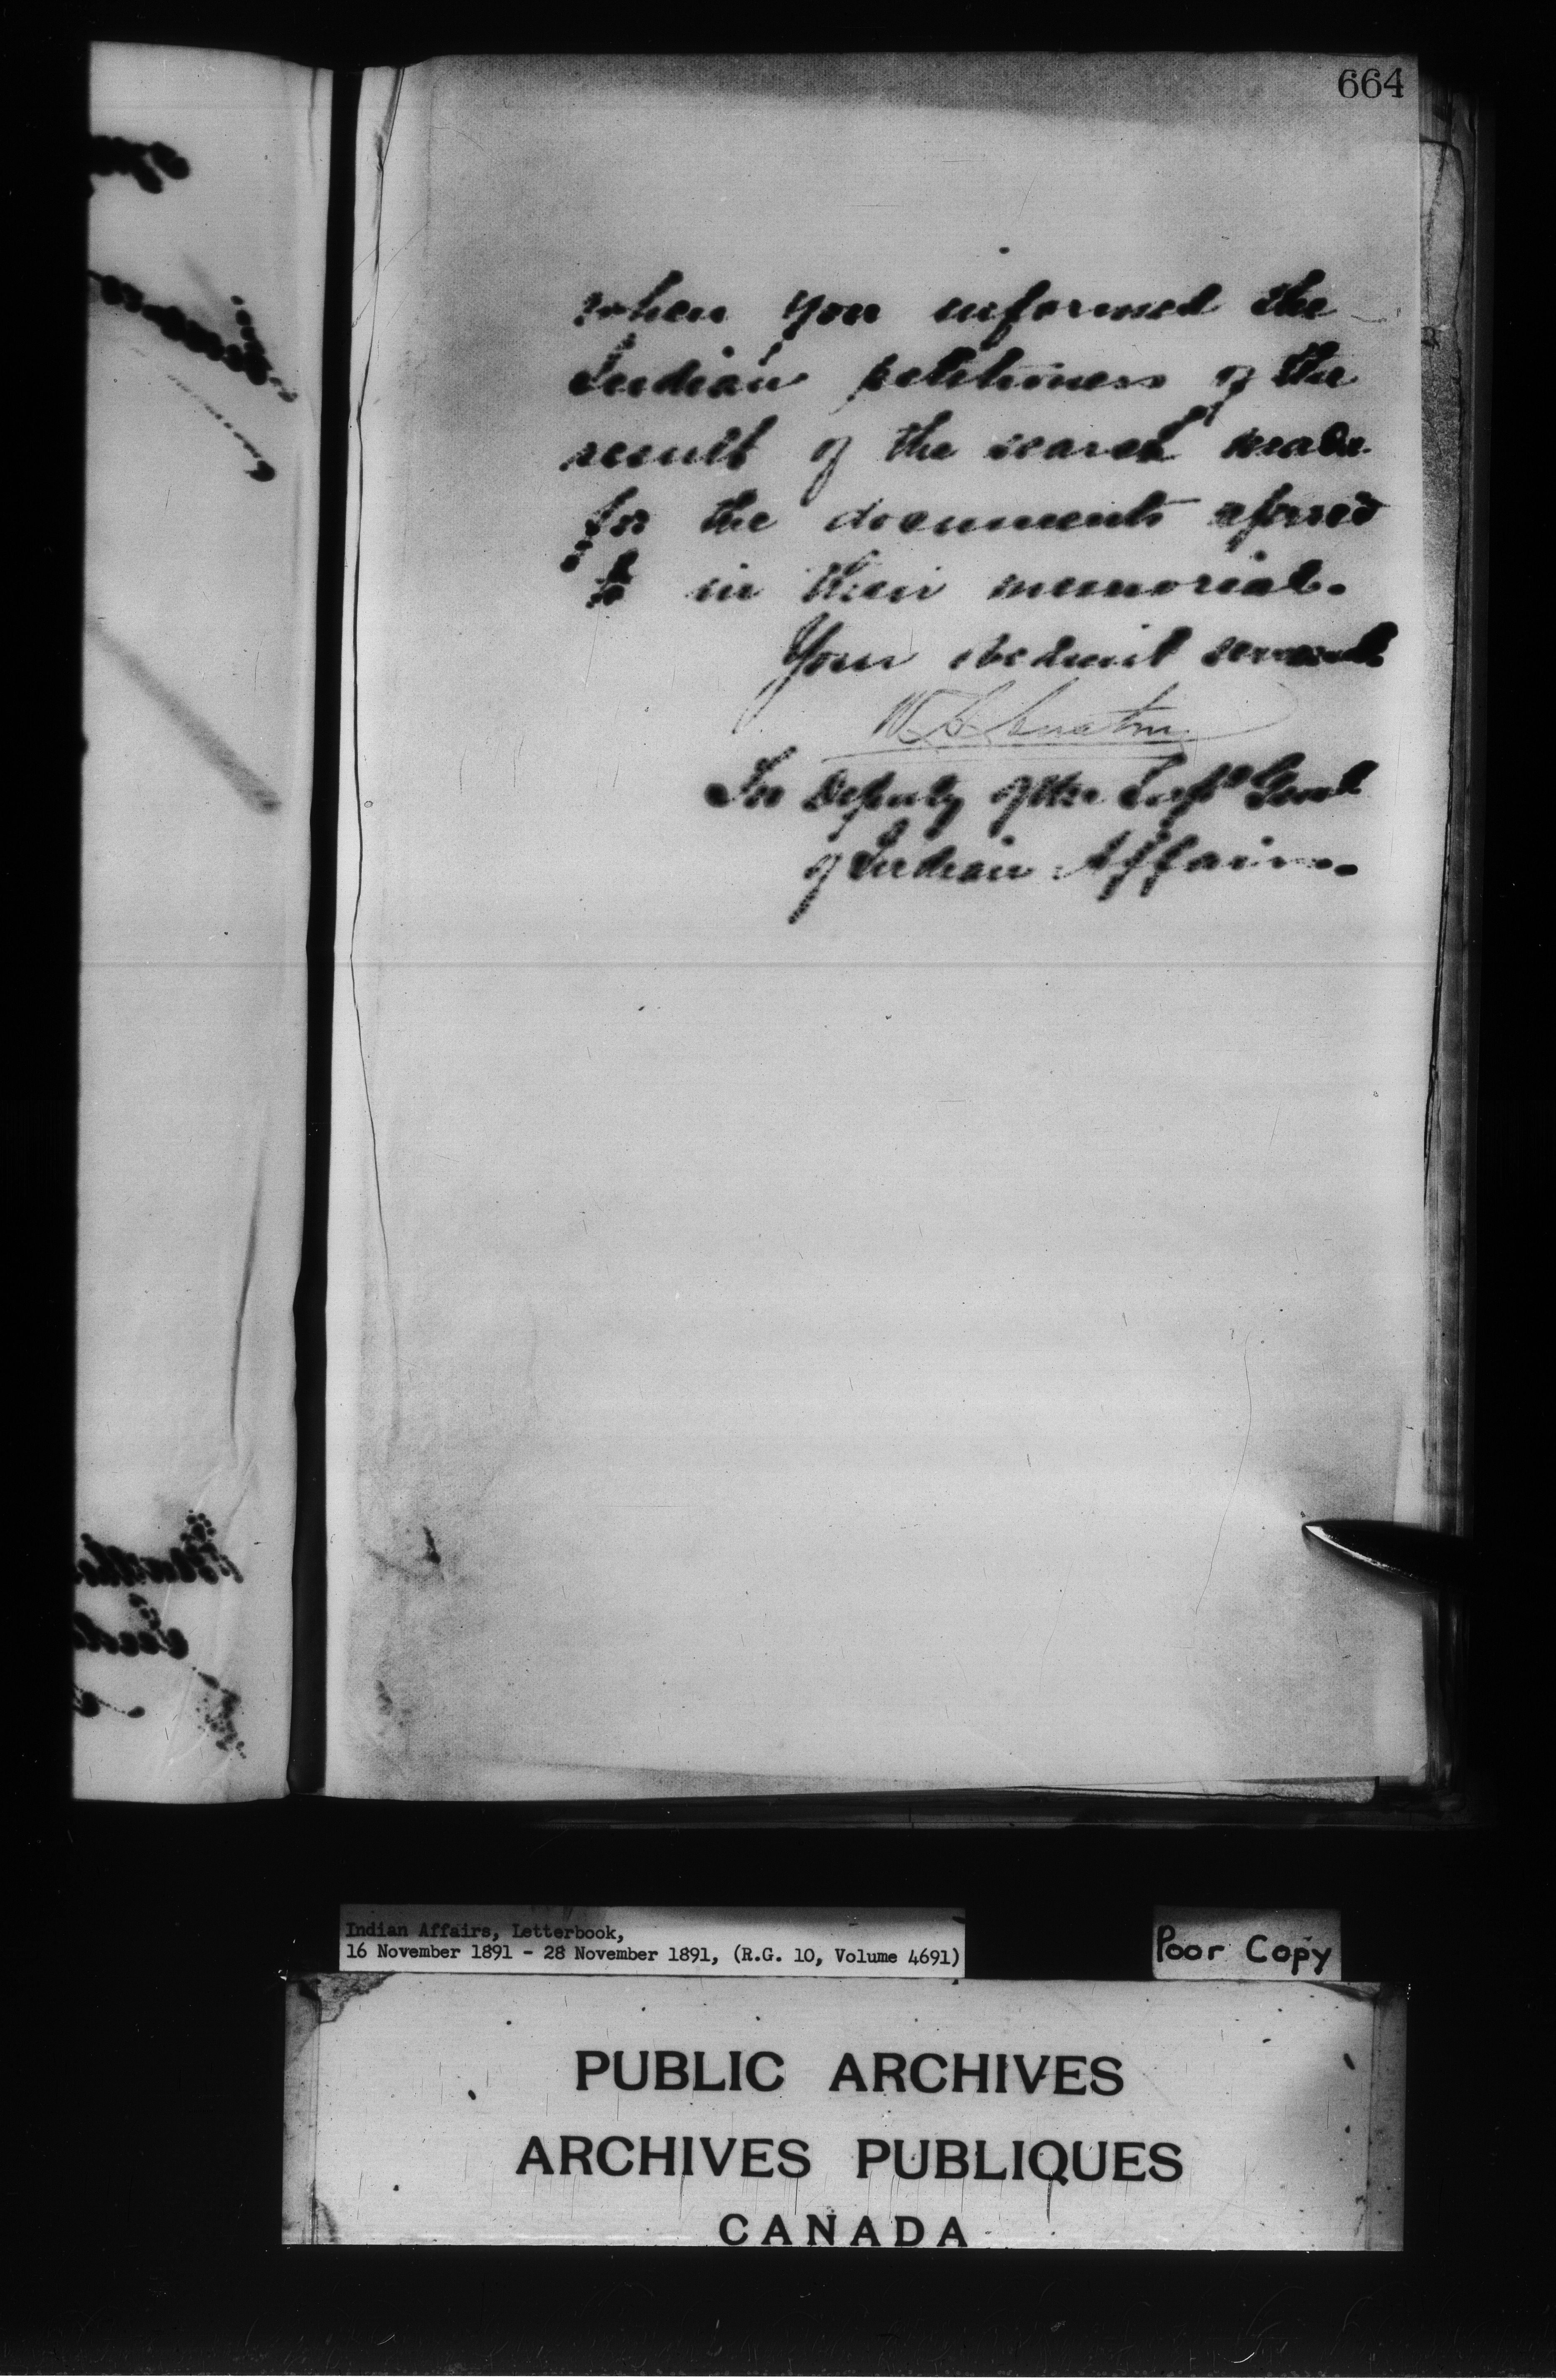 664
when you informed the
Indian petitioners of the
result of the search made
for the documents referred
to in their memorial.
Your obedient servant
For Deputy of the Supt Genl
of Indian Affairs.
Indian Affairs, Letterbook,
16 November 1891 - 28 November 1891, (R.G. 10, Volume 4691)
Poor Copy
PUBLIC ARCHIVES
ARCHIVES PUBLIQUES
CANADA